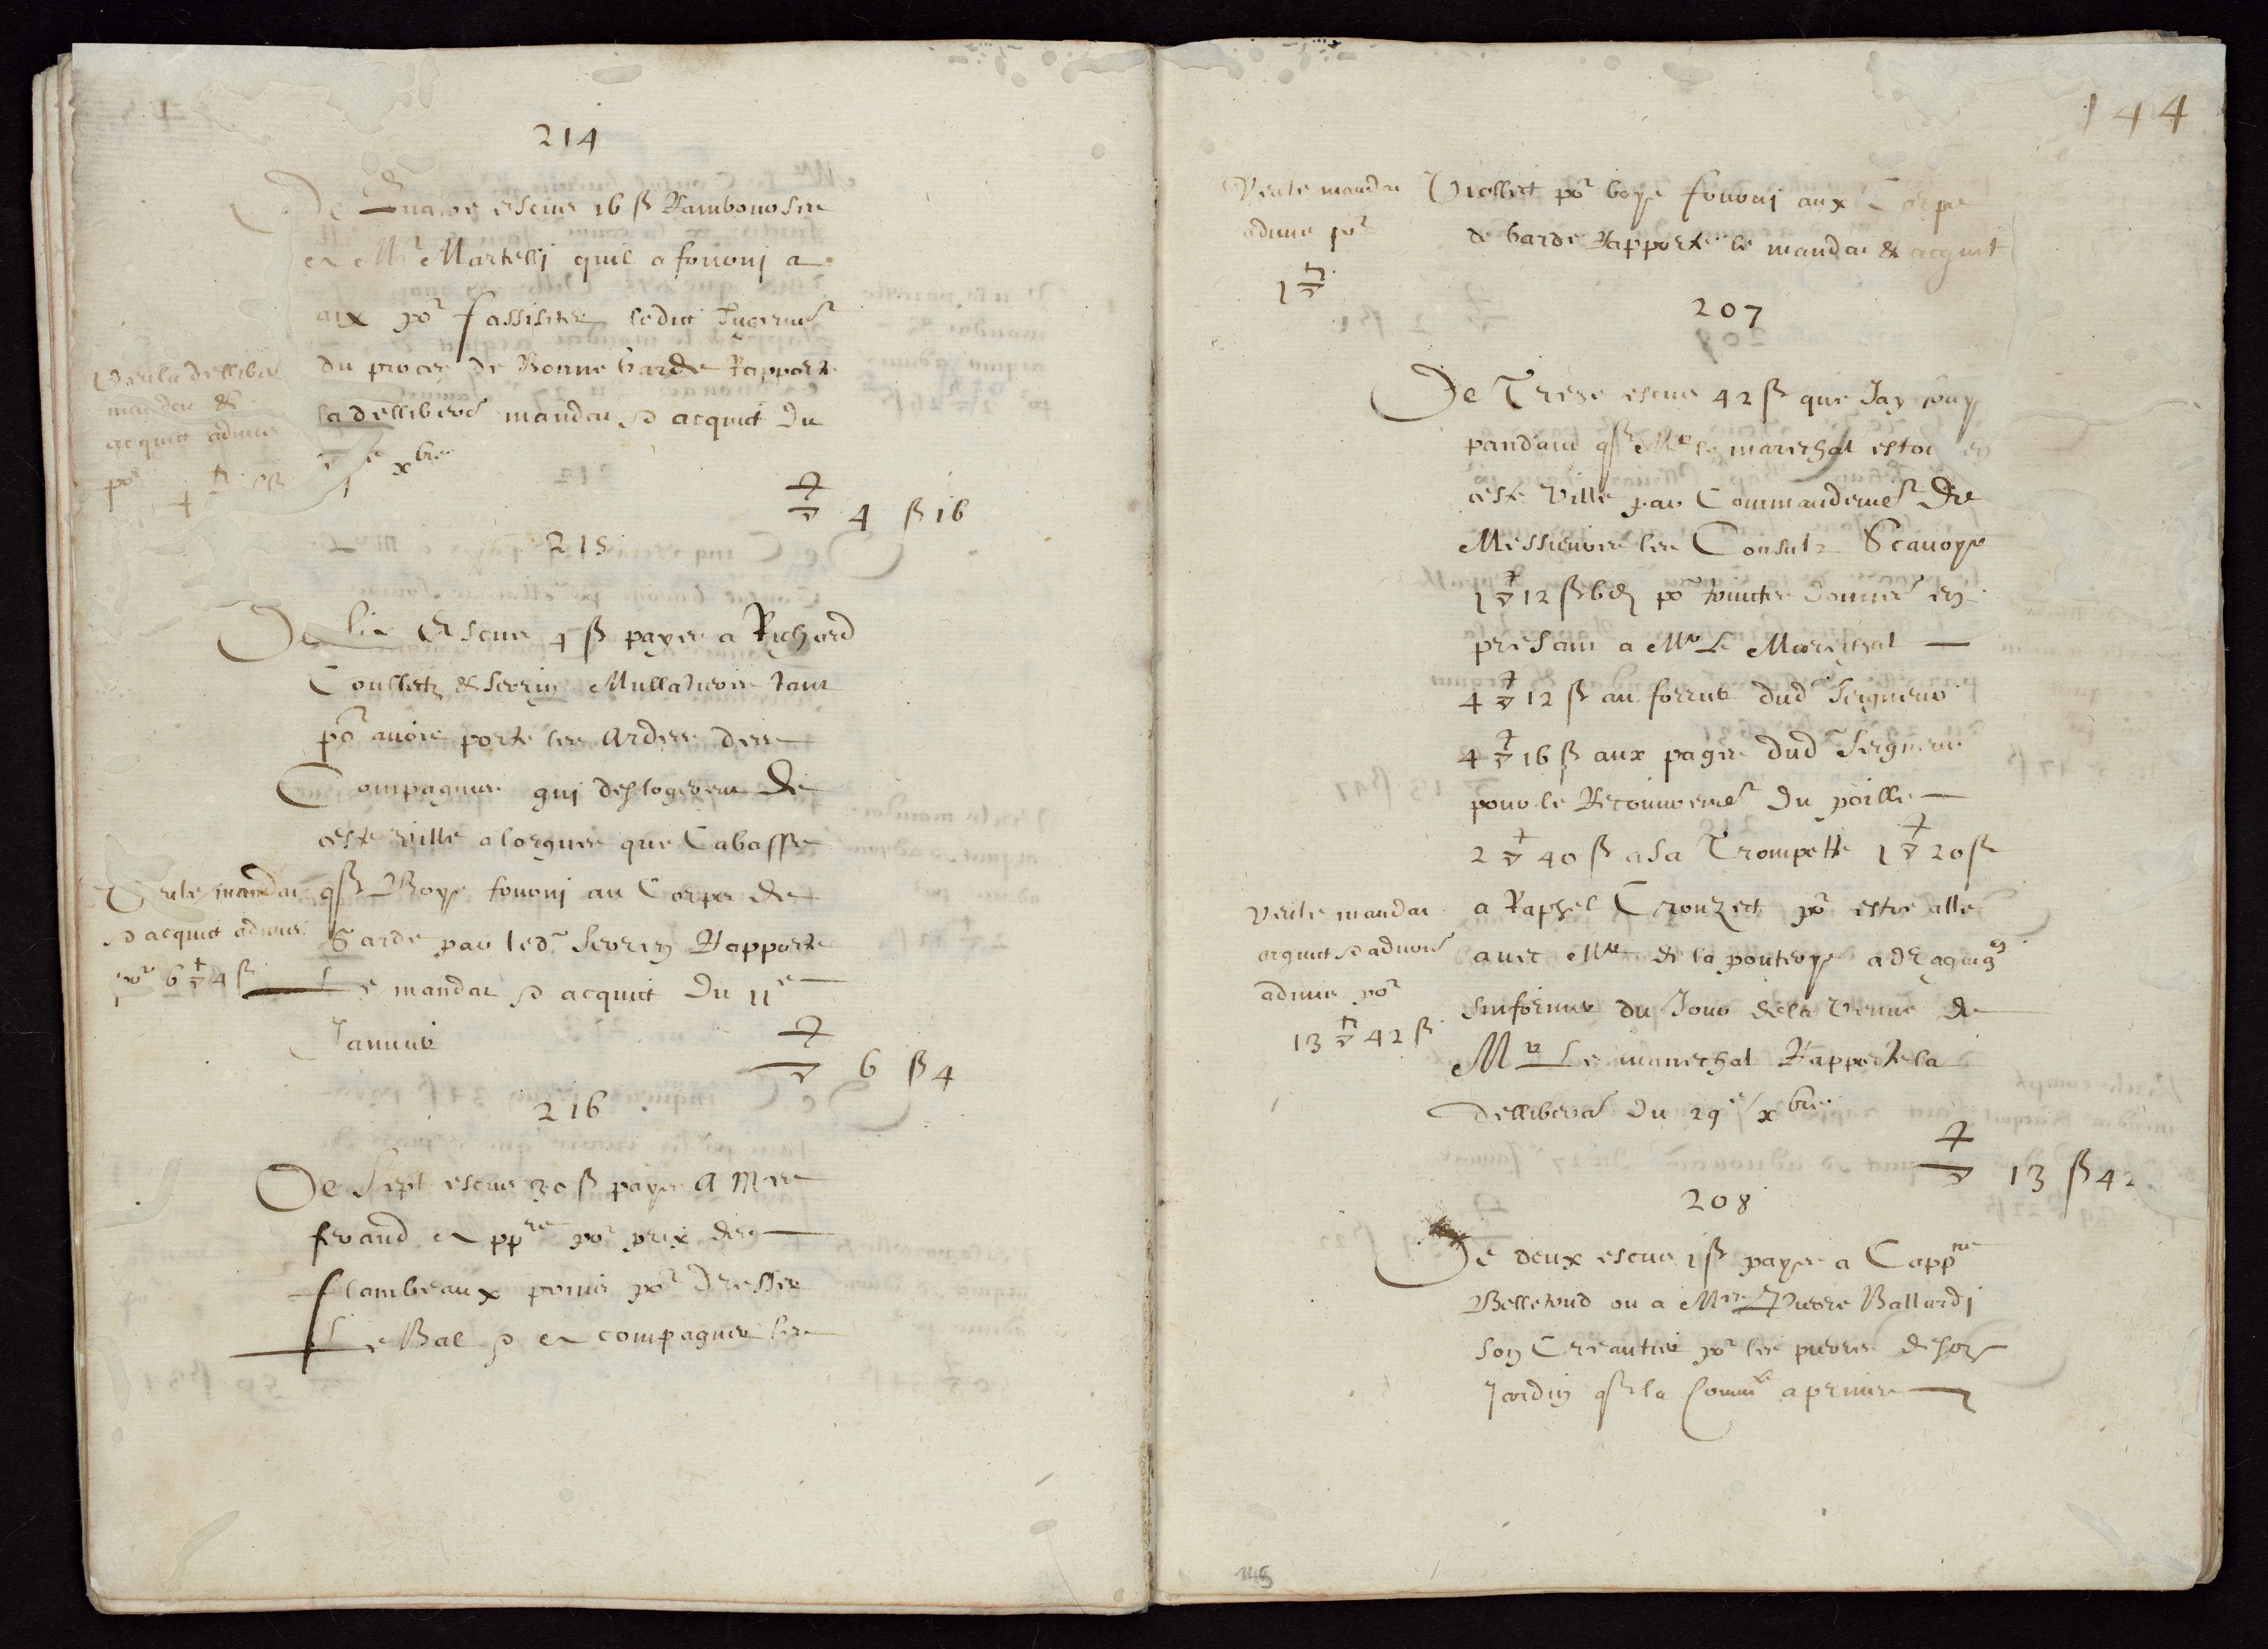 214
De Quatre escus 16 ß Rambonoser
a Mr Martelli quil a fourni a
aix por fassister ledict Jugemet
du proces de Bonne Garde Rapporte
la delliberõ mandat & acquict du
xbre
4 ß 16
Veu la delliber
mandat &
acquict admis
por 4
215
De six Escus 4 ß payes a Richard
Coullet & Seorin Mullatiers tant
por avoir porte les Ardes des
Compagnies qui deslogerent de
ceste ville a lorgues que Cabasse
que Boys fourni au Corps de
Garde par led. Seorin Rapporte
Le mandat & acquict du 11e
Januier
6 ß 4
Veu le mandat
& acquict admis
por 6 4 ß
216
De Sept escus 30 ß payes A Mre
ferand a ppre por prix des
flambeaux prins por dresser
Le Bal & a compagner les
144
Veu le mandat
admis por
1
Viollet por boys fourni aux Corps
de Garde Rapporte le mandat & acquit
207
De Treze escus 42 ß que Jay paye
pandant que Mr le mareschal estoit en
ceste Ville par Commandemet de
Messieurs les Consulz Scavoyr
1 12 ß 6 d por donner en
presant a Mr Le Mareschal
4 12 ß au dud Seigneur
4 16 ß aux pages dud Seigneur
pour le Recouuremet du poille
2 40 ß a sa Trompette 1 20 ß
a Raphel Crouzet por estre alle
avec Mr de la ponteoys a draguign
sinformer du Jour de la venue de
Mr Le mareschal Rapporte la
delliberaõ du 29e xbre
13 ß 42
Veu le mandat
acquict &
admis por
13 42 ß
208
De deux escus 1 ß payes a Cappne
Belletrud ou a Mre Pierre Ballardi
son Creantier por les pierres de son
Jardin que la Commté a prinse
145